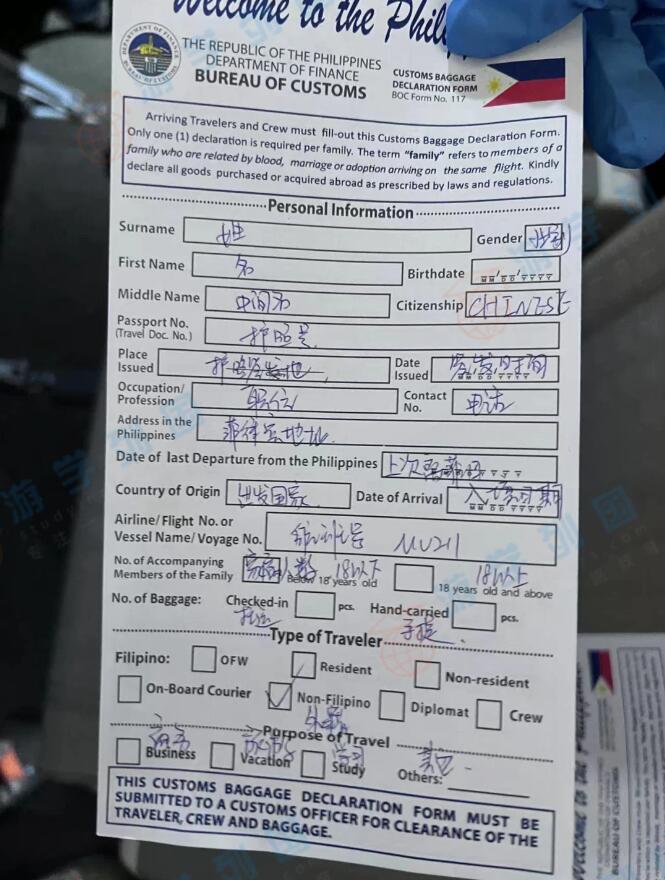 Welcome to the Phili
THE REPUBLIC OF THE PHILIPPINES
DEPARTMENT OF FINANCE
BUREAU OF CUSTOMS
CUSTOMS BAGGAGE
DECLARATION FORM
BOC Form No. 117
Arriving Travelers and Crew must fill-out this Customs Baggage Declaration Form.
Only one (1) declaration is required per family. The term "family" refers to members of a
family who are related by blood, marriage or adoption arriving on the same flight. Kindly
declare all goods purchased or acquired abroad as prescribed by laws and regulations.
Personal Information
Surname 姓 Gender 性别
First Name 名 Birthdate MM DD YYYY
Middle Name 中间名 Citizenship CHINESE
Passport No. 护照号
(Travel Doc. No.)
Place Issued 护照签发地 Date Issued 签发时间 MM DD YYYY
Occupation/
Profession 职位 Contact No. 电话
Address in the
Philippines 菲律宾地址
Date of last Departure from the Philippines 上次离菲
Country of Origin 出发国家 Date of Arrival 入境日期 MM DD YYYY
Airline/Flight No. or
Vessel Name/Voyage No. 航班号 MU211
No. of Accompanying
Members of the Family 人数 Below 18 years old 18以下 18 years old and above 18以上
No. of Baggage: Checked-in 托运 pcs. Hand-carried 手提 pcs.
Type of Traveler
Filipino: OFW Resident Non-resident
On-Board Courier Non-Filipino Diplomat Crew
Purpose of Travel
Business 商务 Vacation Study 学习 Others: 其他
THIS CUSTOMS BAGGAGE DECLARATION FORM MUST BE
SUBMITTED TO A CUSTOMS OFFICER FOR CLEARANCE OF THE
TRAVELER, CREW AND BAGGAGE.